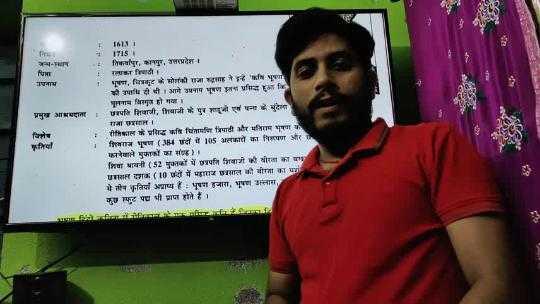 : 1613 ।
निधन : 1715 ।
जन्म-स्थान : तिकवांपुर, कानपुर, उत्तरप्रदेश ।
पिता : रत्नाकर त्रिपाठी ।
उपनाम : भूषण, चित्रकूट के सोलंकी राजा रुद्रसाह ने इन्हें 'कवि भूषण
की उपाधि दी थी । आगे उपनाम भूषण इतना प्रसिद्ध हुआ कि
मूलनाम विस्मृत हो गया ।
प्रमुख आश्रयदाता : छत्रपति शिवाजी, शिवाजी के पुत्र शाहूजी एवं पन्ना के बुंदेला
राजा छत्रसाल ।
विशेष : रीतिकाल के प्रसिद्ध कवि चिंतामणि त्रिपाठी और मतिराम भूषण के
कृतियाँ : शिवराज भूषण (384 छंदों में 105 अलंकारों का निरूपण और
करनेवाले मुक्तकों का संग्रह) ।
शिवा बावनी (52 मुक्तकों में छत्रपति शिवाजी की वीरता का
छत्रसाल दशक (10 छंदों में महाराज छत्रसाल की वीरता का
ये तीन कृतियाँ अप्राप्य हैं : भूषण हजारा, भूषण उल्लास,
कुछ स्फुट पद्य भी प्राप्त होते हैं ।